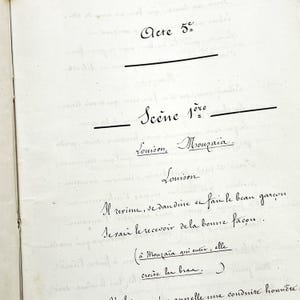 Acte 5e
Scène 1ère
Louison, Mouzaia
Louison
Il revient, se dandine et fait le beau garçon
Je vais le recevoir de la bonne façon.
(à Mouzaïa qui entre, elle
croise les bras.)
appelle une conduite honnête